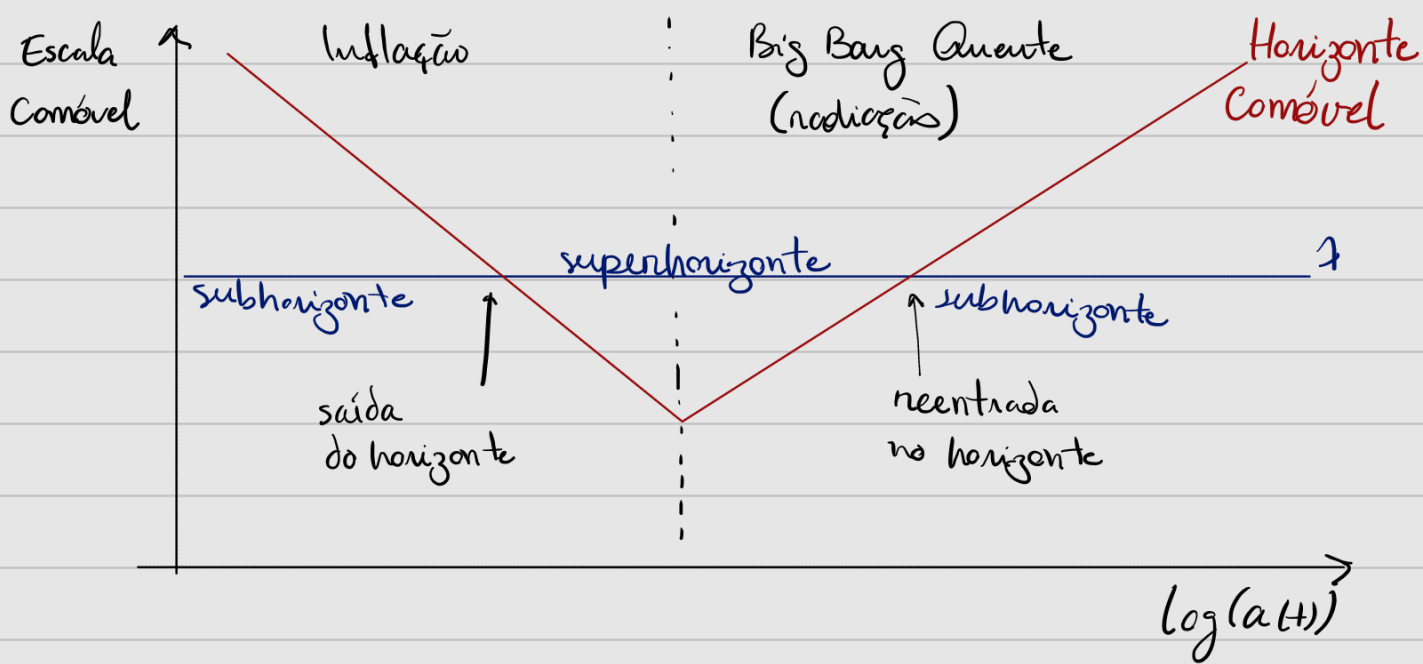 Escala
Comóvel
Inflação
Big Bang Quente
(radiação)
Horizonte
Comóvel
superhorizonte
λ
subhorizonte
subhorizonte
saída
do horizonte
reentrada
no horizonte
log(a(t))